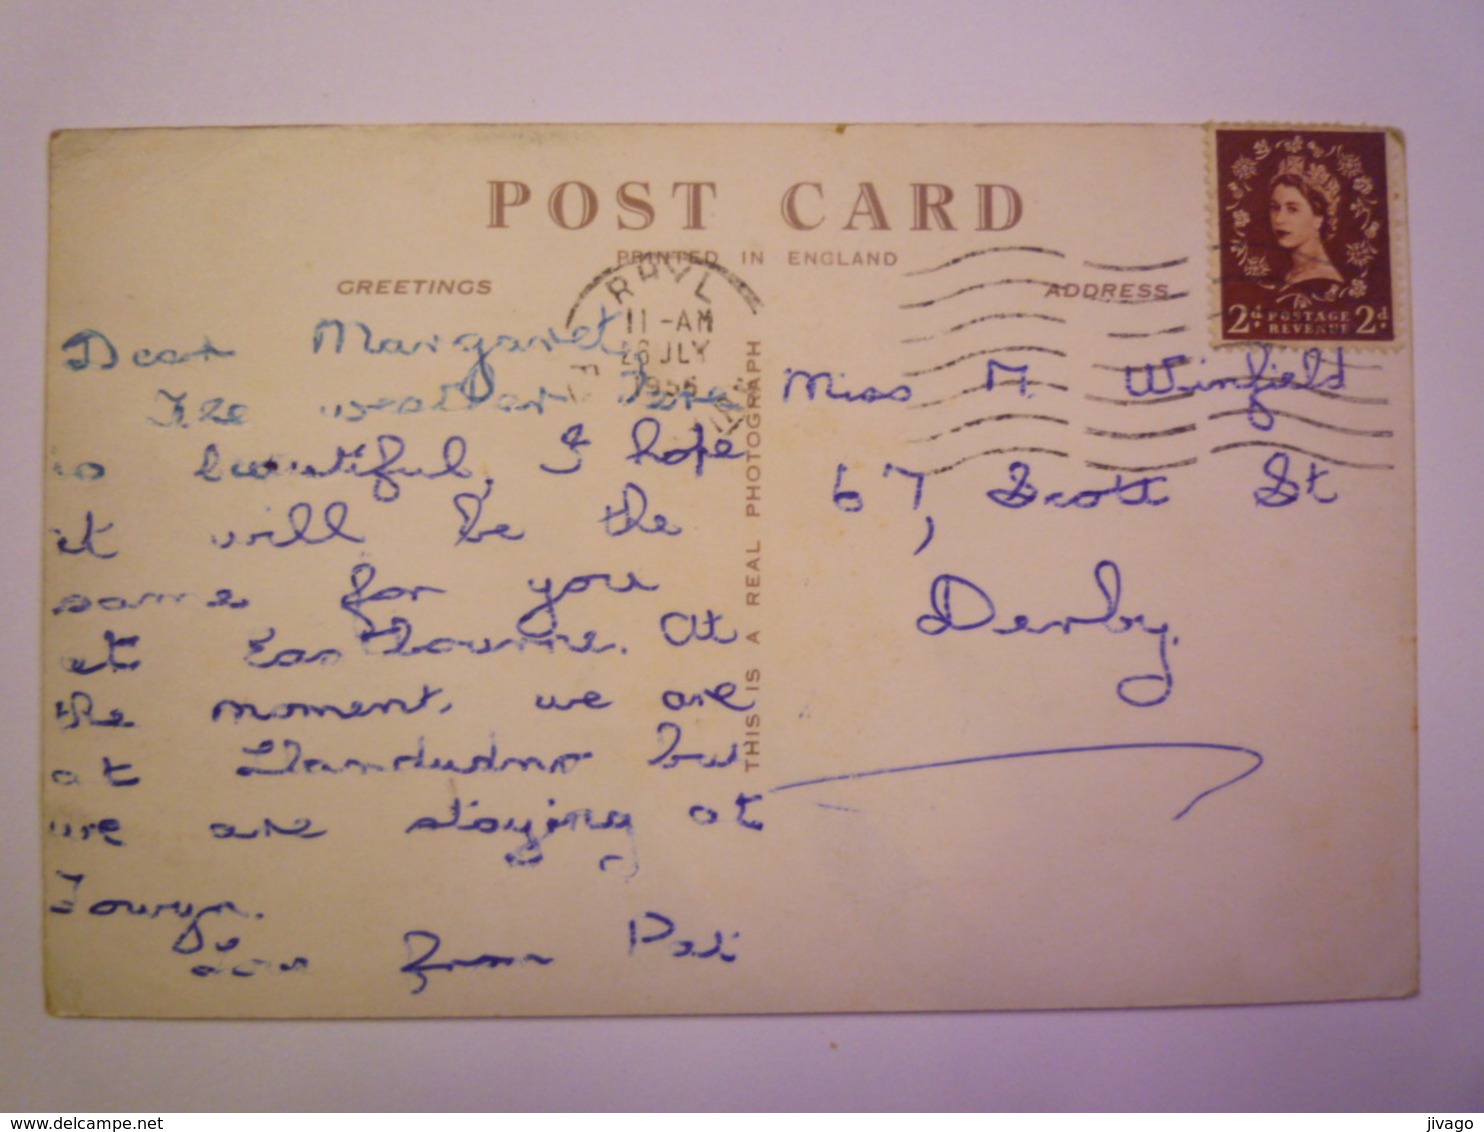 POST CARD
PRINTED IN ENGLAND
GREETINGS
ADDRESS
RHYL
11-AM
26 JLY
1956
2d POSTAGE REVENUE 2d
Dear Margaret,
The weather here
is beautiful, I hope
it will be the
same for you
at Eastbourne. At
the moment, we are
at Llandudno but
we are staying at
Towyn.
Love from Pat
THIS IS A REAL PHOTOGRAPH
Miss M. Winfield
67, Scott St
Derby.
delcampe.net
jivago